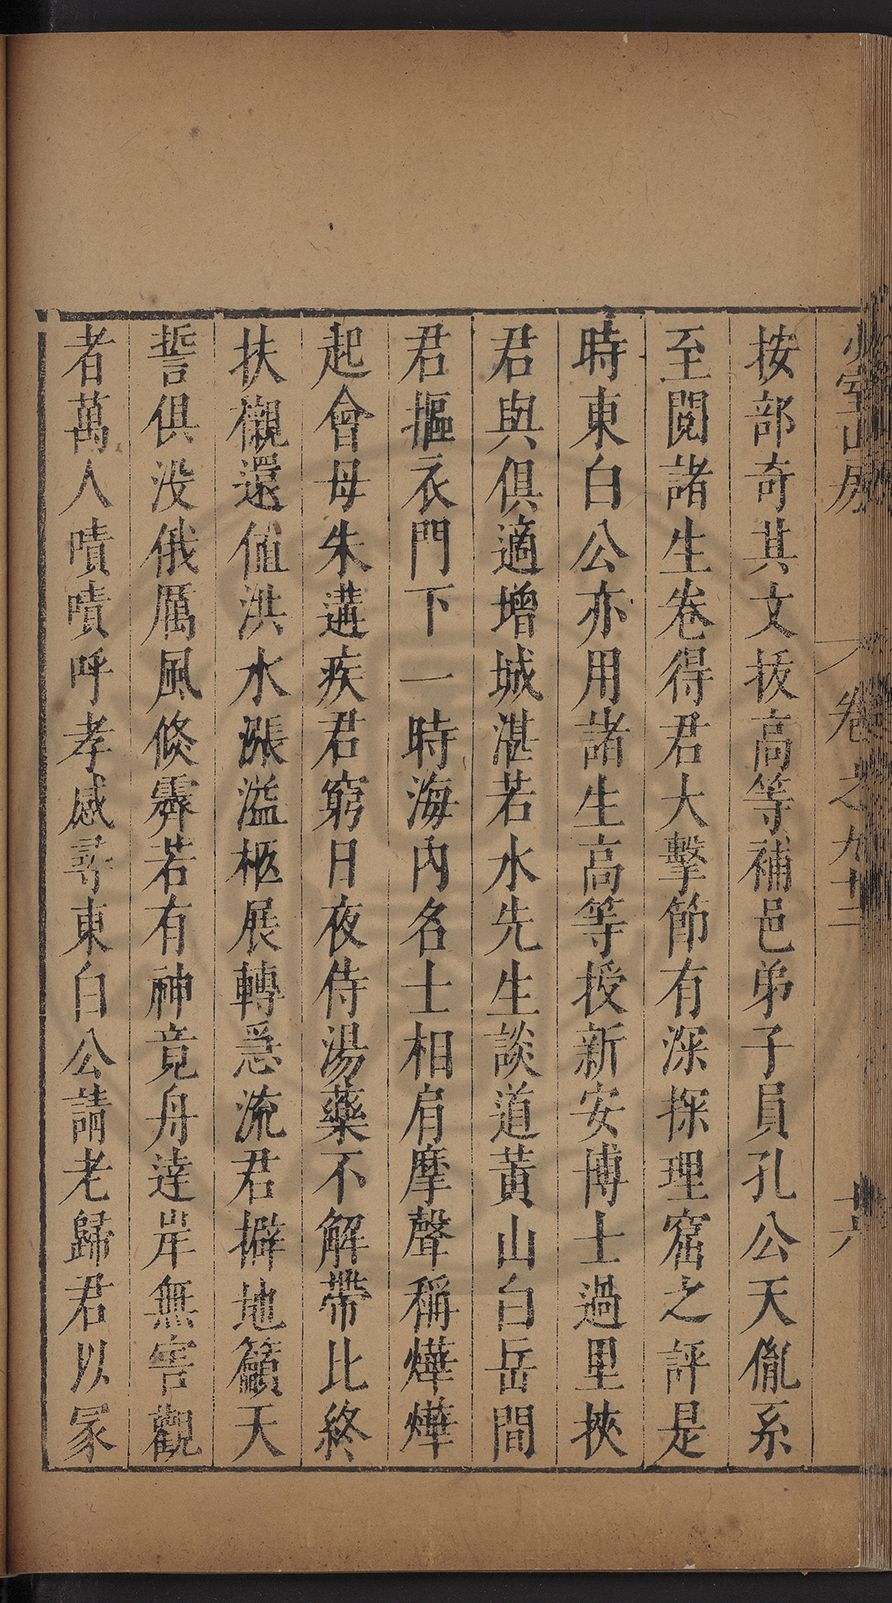 少室山房
卷之九十二
十六
按部奇其文拔高等補邑弟子員孔公天胤系
至閱諸生卷得君大擊節有深探理窟之評是
時東白公亦用諸生高等授新安博士過里挾
君與俱適增城湛若水先生談道黃山白岳間
君摳衣門下一時海內名士相肩摩聲稱燁燁
起會母朱遘疾君窮日夜侍湯藥不解帶比終
扶櫬還値洪水漲溢柩展轉急流君擗地籲天
誓俱沒俄厲風倐霽若有神竟舟達岸無害觀
者萬人嘖嘖呼孝感尋東白公請老歸君以冢